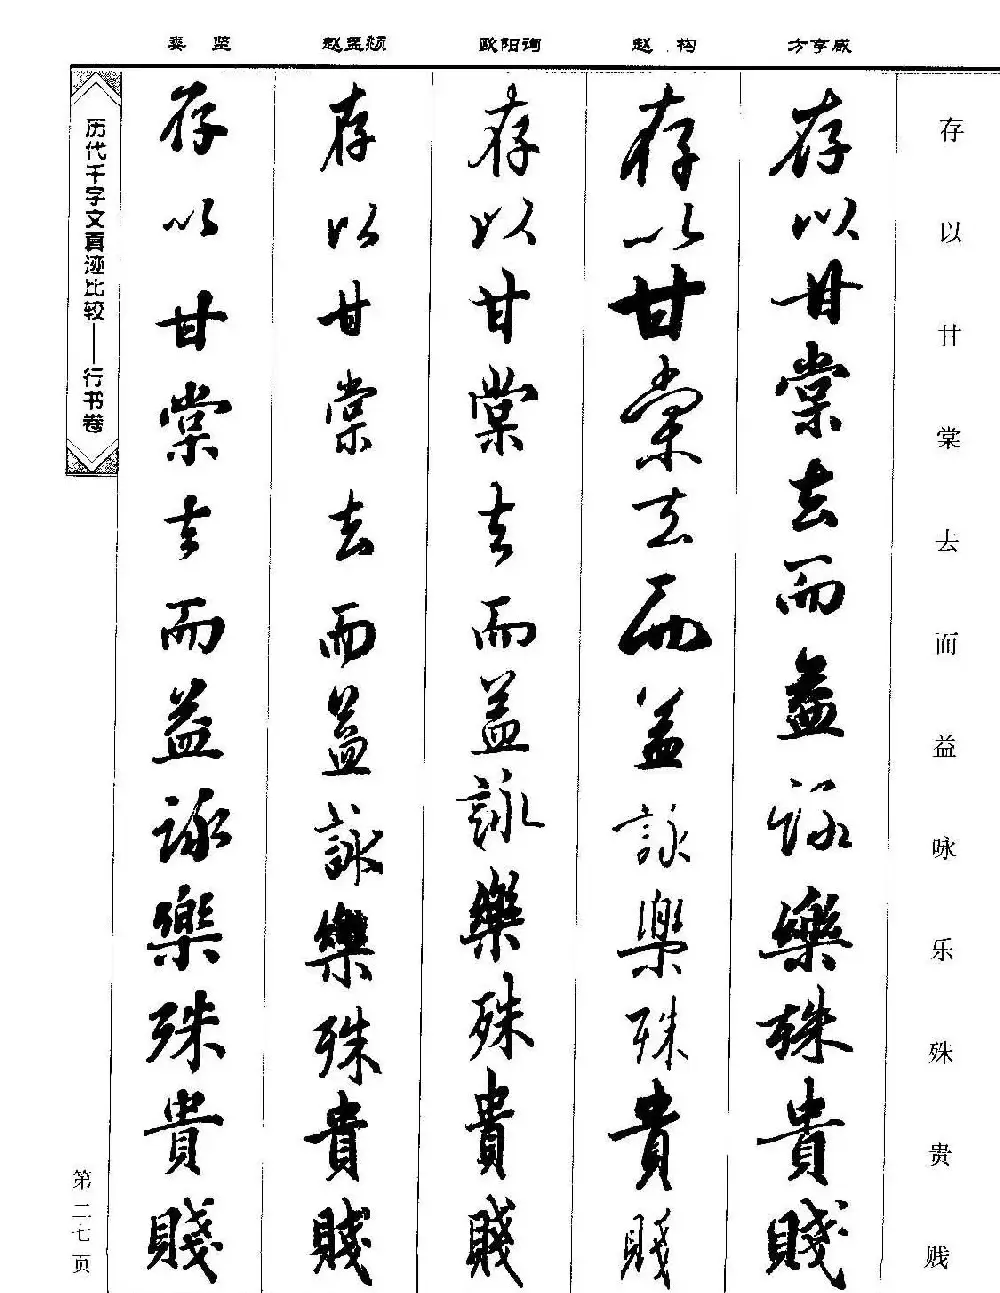 坚 赵孟頫 欧阳询 赵构 方亨咸
存以甘棠去而益咏乐殊贵贱
存以甘棠去而益詠樂殊貴賤
存以甘棠去而益詠樂殊貴賤
存以甘棠去而益詠樂殊貴賤
存以甘棠去而益詠樂殊貴賤
存以甘棠去而益詠樂殊貴賤
历代千字文真迹比较——行书卷
第二七页